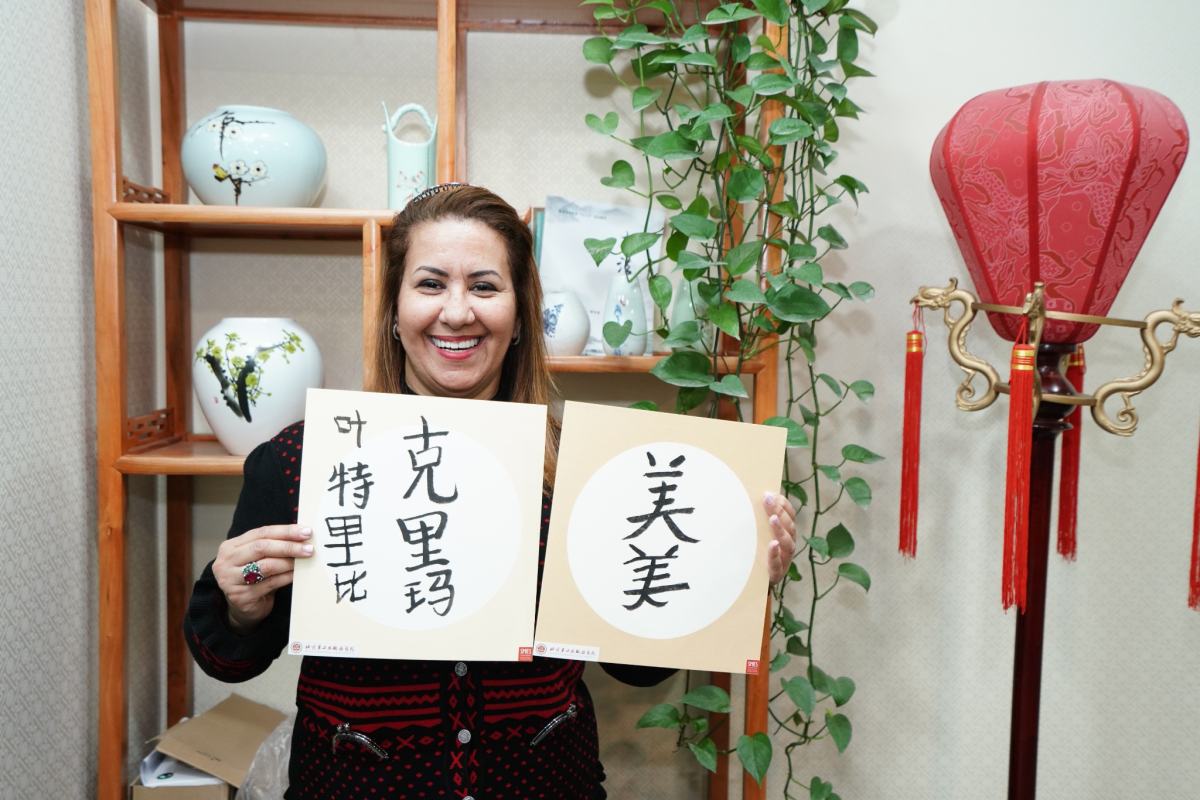 克里玛
叶特里比
美美